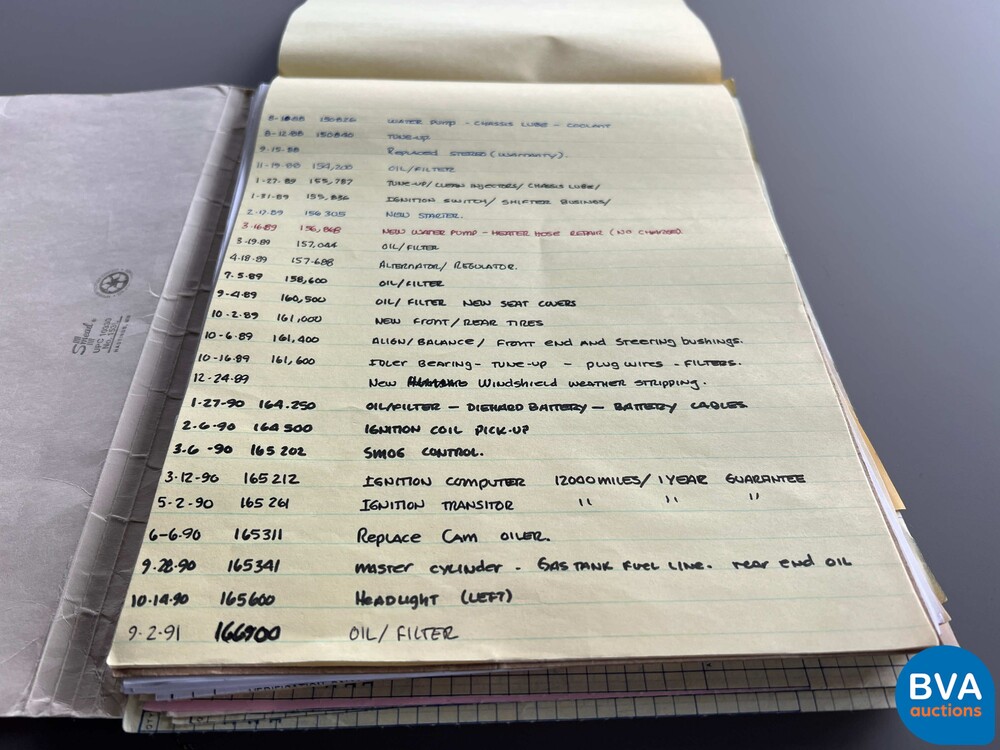 8-12-88 150840 TUNE-UP
WATER PUMP - CHASSIS LUBE - COOLANT
9-15-88 REPLACED STEREO (WARRANTY).
11-19-88 154,200 OIL/FILTER
1-27-89 155,757 TUNE-UP/CLEAN INJECTORS/ CHASSIS LUBE/
1-31-89 155,836 IGNITION SWITCH/ SHIFTER BUSHING/
2-17-89 156305 NEW STARTER.
3-16-89 156,868 NEW WATER PUMP - HEATER HOSE REPAIR (NO CHARGE).
3-19-89 157,044 OIL/FILTER
4-18-89 157-688 ALTERNATOR/ REGULATOR.
7-5-89 158,600 OIL/FILTER
9-4-89 160,500 OIL/ FILTER NEW SEAT COVERS
10-2-89 161,000 NEW FRONT/REAR TIRES
10-6-89 161,400 ALIGN/BALANCE/ FRONT END AND STEERING BUSHINGS.
10-16-89 161,600 IDLER BEARING- TUNE-UP - PLUG WIRES - FILTERS.
12-24-89 NEW Windshield WEATHER STRIPPING.
1-27-90 164.250 OIL/FILTER - DIEHARD BATTERY - BATTERY CABLES
2-6-90 164500 IGNITION COIL PICK-UP
3-6-90 165202 SMOG CONTROL.
3-12-90 165212 IGNITION COMPUTER 12000 MILES/ 1 YEAR GUARANTEE
5-2-90 165261 IGNITION TRANSITOR " " "
6-6-90 165311 REPLACE CAM OILER.
9-28-90 165341 MASTER CYLINDER - GAS TANK FUEL LINE. rear end OIL
10-14-90 165600 HEADLIGHT (LEFT)
9-2-91 166900 OIL/ FILTER
Smead
UPC 10330
HASTINGS, MN
BVA
auctions